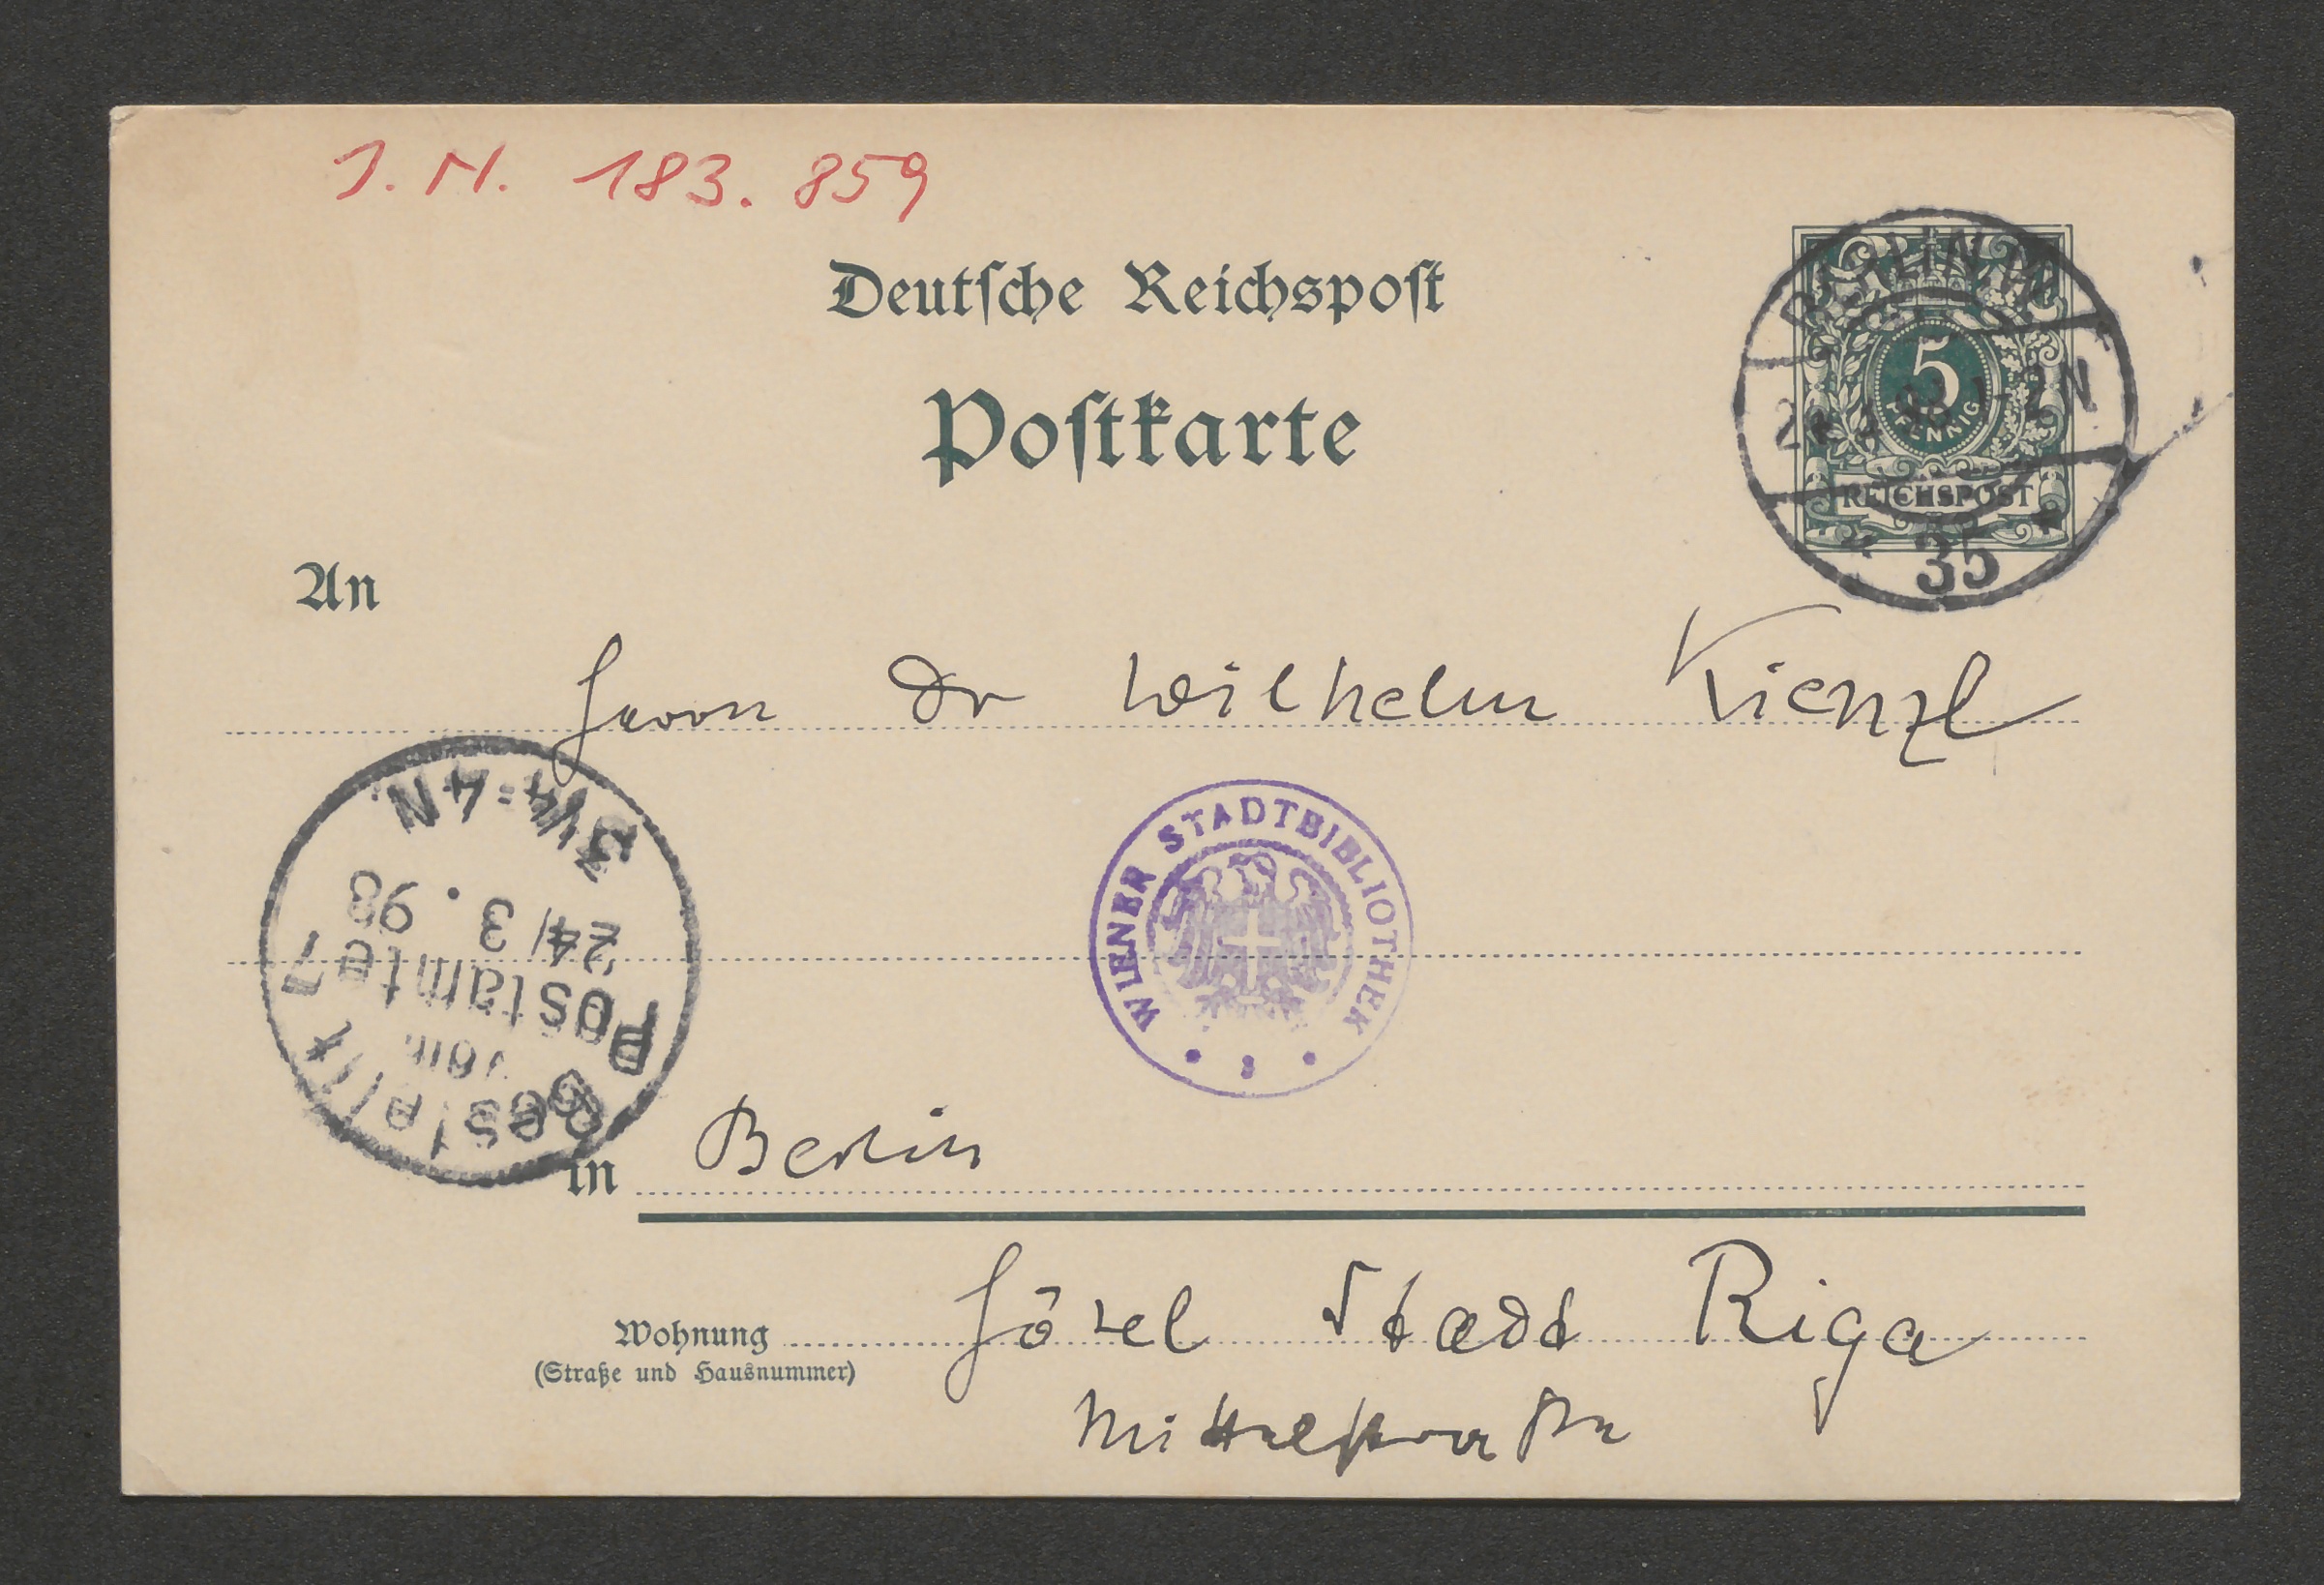 J. N. 183.859
Deutsche Reichspost
Postkarte
BERLIN W
5
PFENNIG
REICHSPOST
1-2N
35
An
Herrn Dr Wilhelm Kienzl
WIENER STADTBIBLIOTHEK
Bestellt
vom
Postamte 7
24/3.98
3¼-4N.
in Berlin
Wohnung Hôtel Stadt Riga
(Straße und Hausnummer)
Mittelstraße